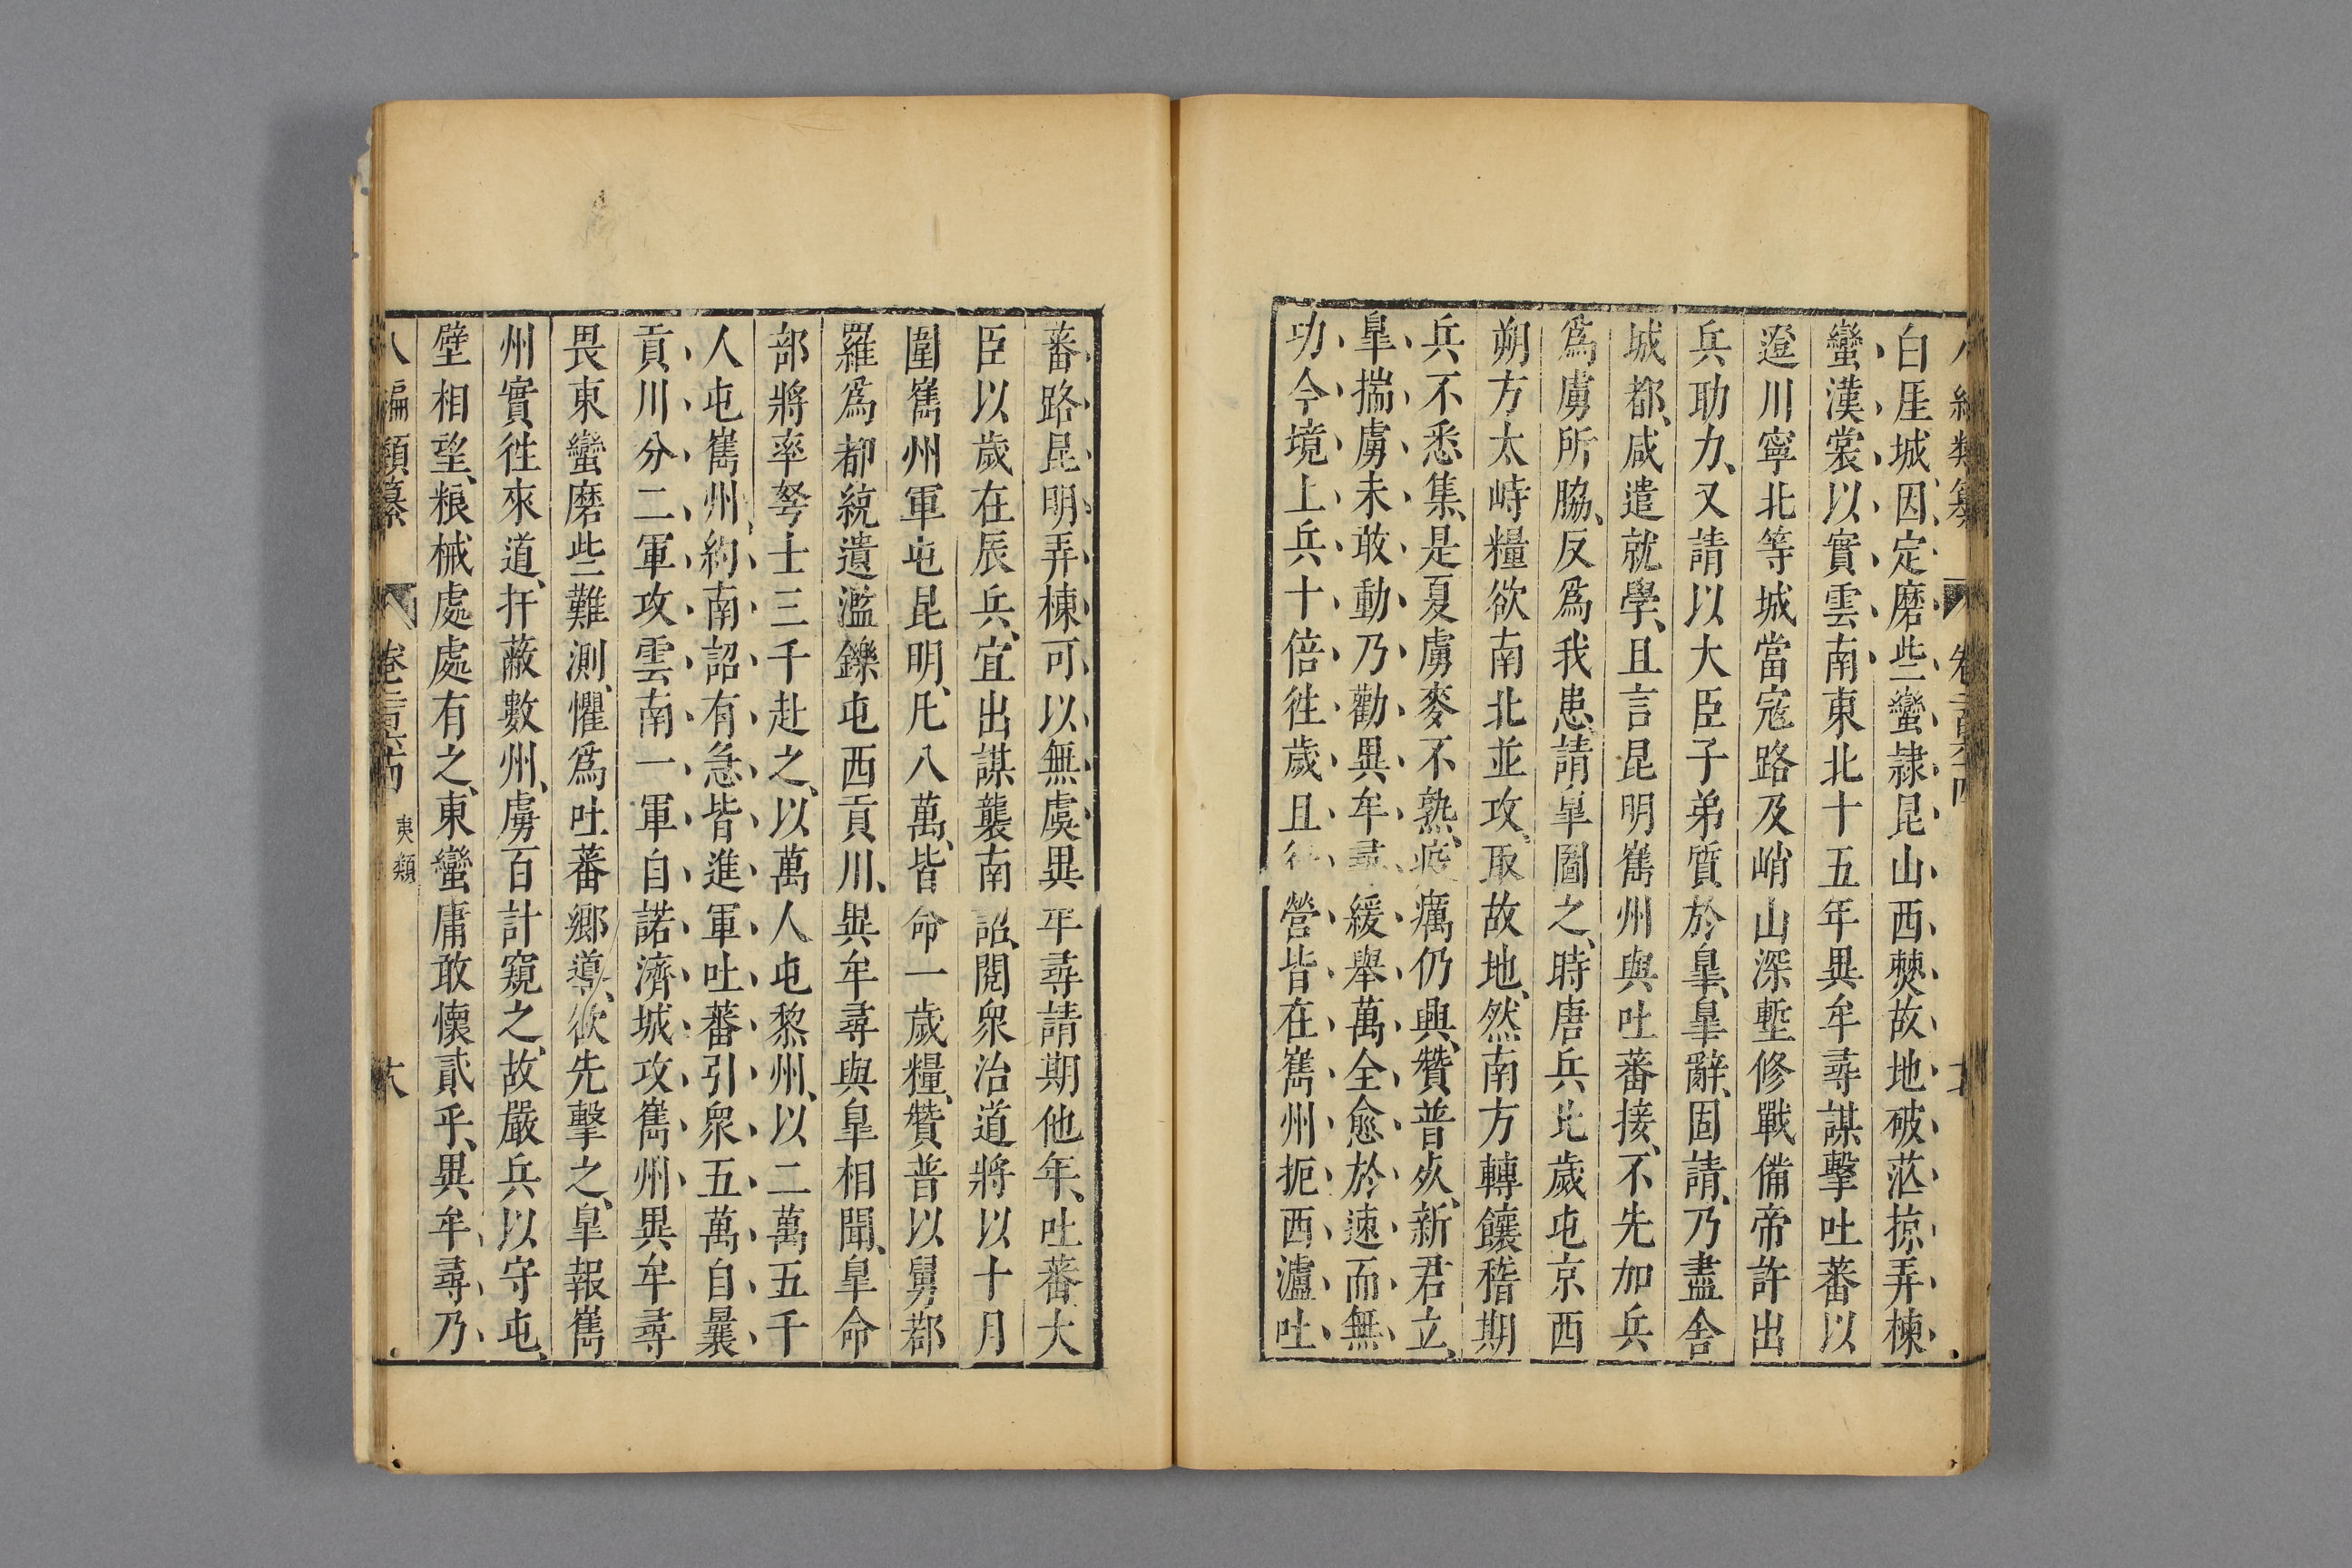 白厓城因定磨些蠻隷昆山西爨故地破茫掠弄棟
蠻漢裳以實雲南東北十五年異牟尋謀擊吐蕃以
邆川寧北等城當寇路及峭山深塹修戰備帝許出
兵助力又請以大臣子弟質於皐皐辭固請乃盡舍
城都咸遣就學且言昆明巂州與吐蕃接不先加兵
爲虜所脇反爲我患請皐圖之時唐兵比歲屯京西
朔方大峙糧欲南北並攻取故地然南方轉饟稽期
兵不悉集是夏虜麥不熟疫癘仍興贊普死新君立
皐揣虜未敢動乃勸異牟尋緩舉萬全愈於速而無
功今境上兵十倍往歲且行營皆在巂州扼西瀘吐
蕃路昆明弄棟可以無虞異牟尋請期他年吐蕃大
臣以歲在辰兵宜出謀襲南詔閱衆治道將以十月
圍巂州軍屯昆明凡八萬皆命一歲糧贊普以舅都
羅爲都統遺濫鑠屯西貢川異牟尋與皐相聞皐命
部將率弩士三千赴之以萬人屯黎州以二萬五千
人屯巂州約南詔有急皆進軍吐蕃引衆五萬自曩
貢川分二軍攻雲南一軍自諾濟城攻巂州異牟尋
畏東蠻磨些難測懼爲吐蕃鄉導欲先擊之皐報巂
州實徃來道扞蔽數州虜百計窺之故嚴兵以守屯
壁相望粮械處處有之東蠻庸敢懷貳乎異牟尋乃
八編類纂 夷類 十六